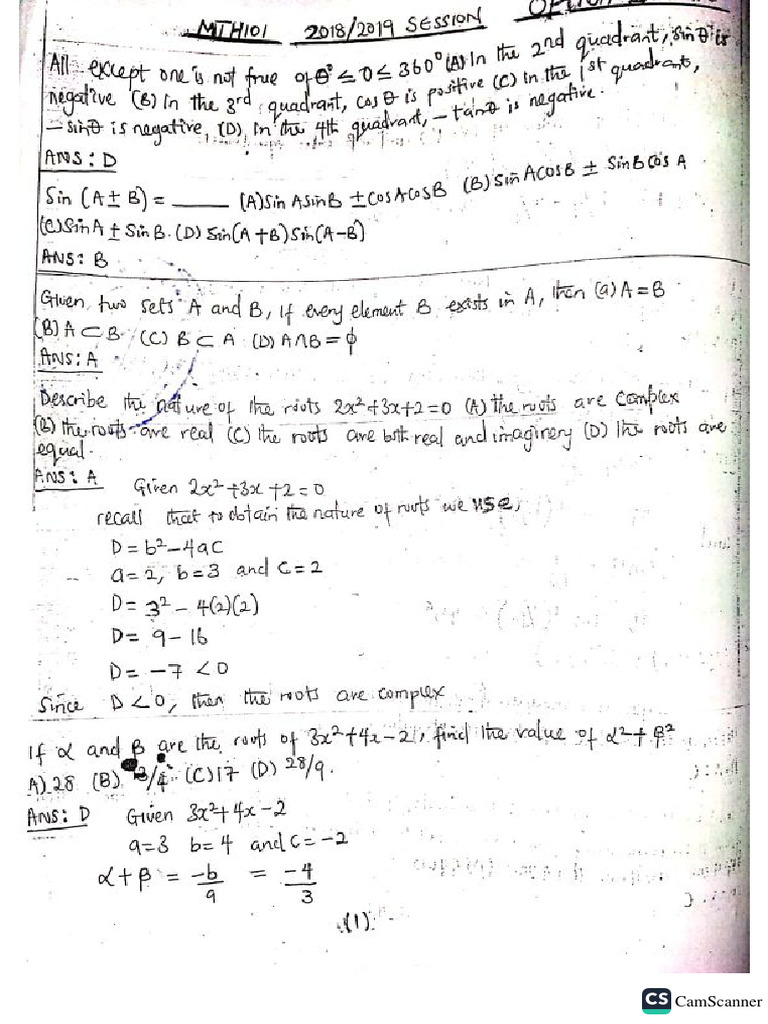 MTH101 2018/2019 SESSION
All except one is not true of θ° ≤ 0 ≤ 360° (A) In the 2nd quadrant, sinθ is
negative (B) In the 3rd quadrant, cos θ is positive (C) in the 1st quadrant,
- sinθ is negative, (D) In the 4th quadrant, - tanθ is negative.
ANS: D
Sin (A ± B) = ____ (A) Sin A sin B ± cos A cos B (B) Sin A cos B ± Sin B cos A
(C) Sin A ± Sin B. (D) Sin(A + B) Sin(A - B)
ANS: B
Given two sets A and B, If every element B exists in A, then (a) A = B
(B) A ⊂ B (C) B ⊂ A (D) A ∩ B = ϕ
ANS: A
Describe the nature of the roots 2x² + 3x + 2 = 0 (A) the roots are complex
(B) the roots are real (C) the roots are both real and imaginery (D) the roots are
equal.
ANS: A Given 2x² + 3x + 2 = 0
recall that to obtain the nature of roots we use,
D = b² - 4ac
a = 2, b = 3 and c = 2
D = 3² - 4(2)(2)
D = 9 - 16
D = -7 < 0
Since D < 0, then the roots are complex
If α and β are the roots of 3x² + 4x - 2, find the value of α² + β²
A) 28 (B) (C) 17 (D) 28/9.
ANS: D Given 3x² + 4x - 2
a = 3 b = 4 and c = -2
α + β = -b/a = -4/3
(1)
CS CamScanner